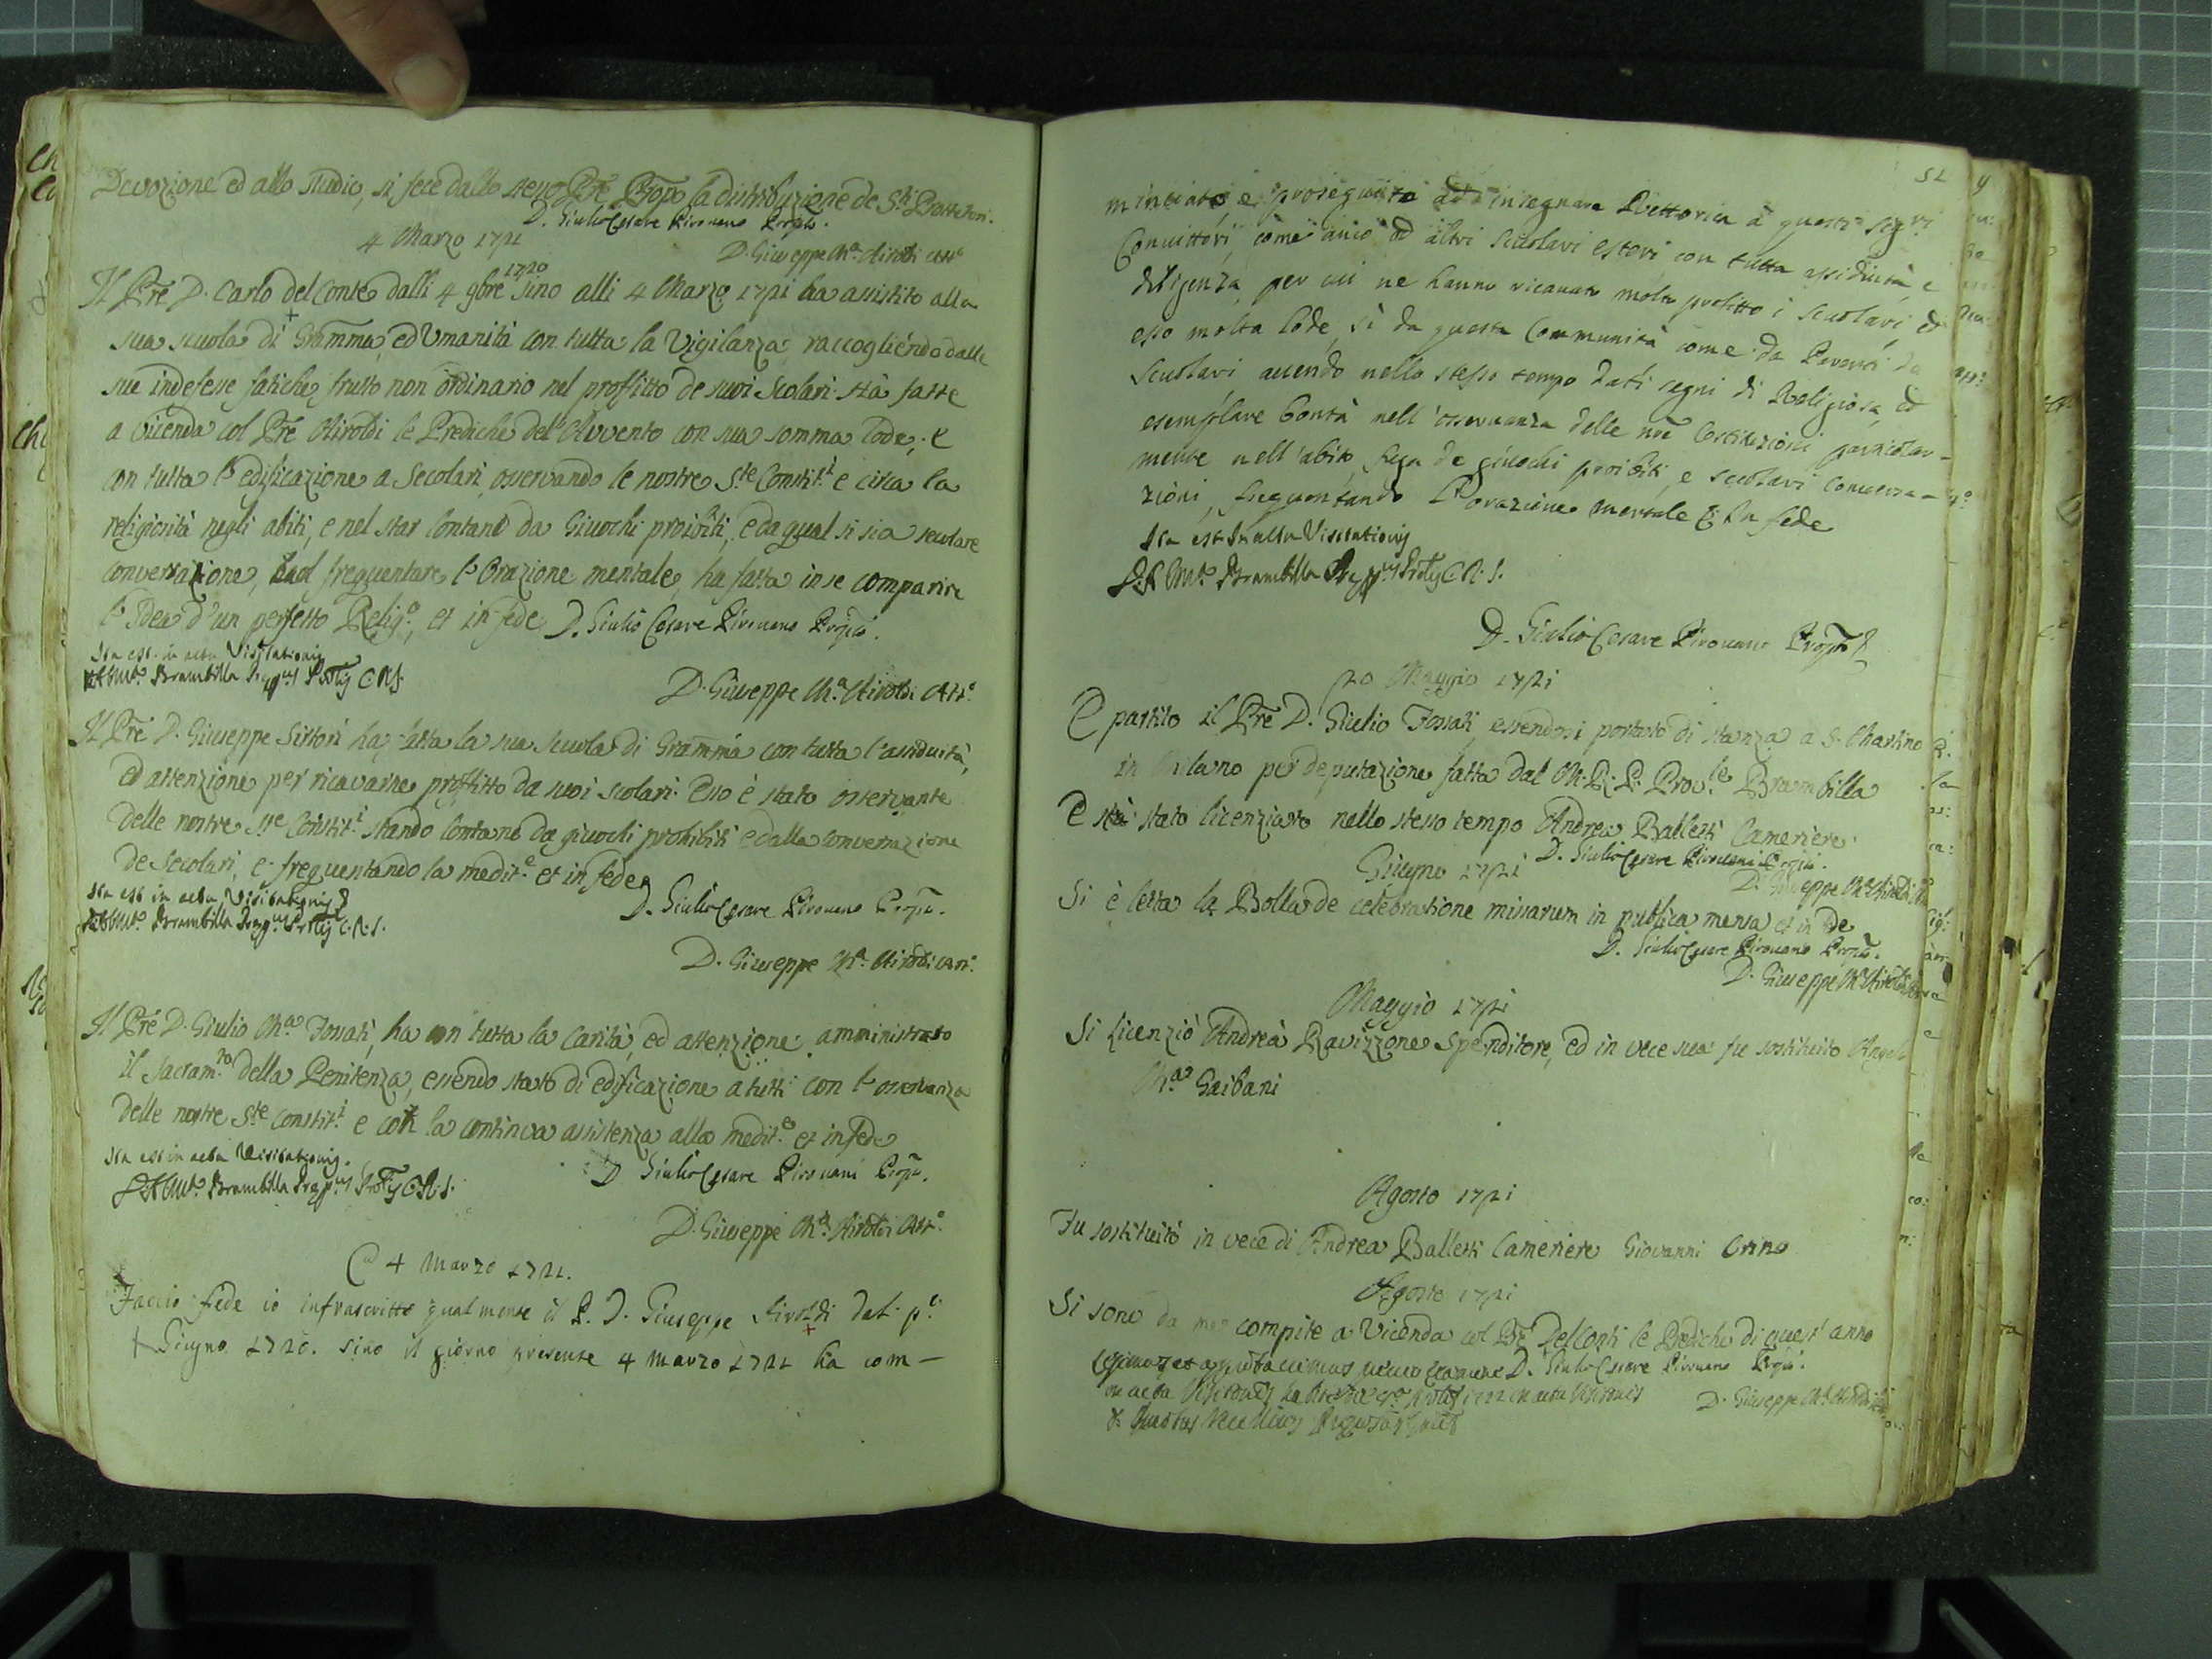 Devozione ed allo studio, si fece dallo stesso Pre Propo la distribuzione de Sti Protettori.
D. Giulio Cesare Pirovano Propto.
4 Marzo 1721
D. Giuseppe Ma. Airoldi Atto
Il Pre D. Carlo del Conte dalli 4 9bre 1720 sino alli 4 Marzo 1721 ha assistito alla
sua scuola di Gramma, ed Umanità con tutta la Vigilanza raccogliendo dalle
sue indefesse fatiche frutto non ordinario nel proffitto de suoi Scolari. Stà fatte
a vicenda col Pre Airoldi le Prediche dell'Avvento con sua somma lode, e
con tutta l'edificazione a Secolari, osservando le nostre Ste Constit.i e circa la
religiosità negli abiti, e nel star lontano da Giuochi proibiti, e da qual si sia secolare
conversazione, frequentare l'Orazione mentale, ha fatto in se comparire
l'Idea d'un perfetto Relig.o, et in fede D. Giulio Cesare Pirovano Propto.
Ita est in actu Visitationis
Brambilla Prepus Prolis C.R.S.
D. Giuseppe Ma. Airoldi Att.o
Il Pre D. Giuseppe Sirtori ha fatta la sua scuola di Gramma con tutta l'assiduità,
ed attenzione per ricavarne proffitto da suoi scolari. Esso è stato osservante
delle nostre Ste Constit.i stando lontano da giuochi prohibiti e dalla conversazione
de Secolari, e frequentando la medit.e et in fede
Ita est in actu Visitationis
D. Giulio Cesare Pirovano Propto.
Brambilla Prepus Prolis C.R.S.
D. Giuseppe Ma. Airoldi Att.o
Il Pre D. Giulio Ma Fossati, ha con tutta la carità, ed attenzione amministrato
il Sacram.to della Penitenza, essendo stato di edificazione a tutti con l'osservanza
delle nostre Ste constit.i e con la continua assistenza alla medit.e et in fede
Ita est in actu Visitationis.
D. Giulio Cesare Pirovani Propto.
Brambilla Prepus Prolis C.R.S.
D. Giuseppe Ma. Airoldi Att.o
A 4 Marzo 1721.
Faccio fede io infrascritto qualmente il P. D. Giuseppe Airoldi dal p.o
Giugno 1720. sino il giorno presente 4 marzo 1721 ha com-
51
minciato, e proseguito ad insegnare Rettorica à questi Sig.ri
Convittori, come anco ad altri scuolari esteri con tutta assiduità, e
diligenza, per cui ne hanno ricavato molto profitto i scuolari, ed
esso molta lode, sì da questa Communità come da Parenti de
Scuolari avendo nello stesso tempo dati segni di Religiosa, ed
esemplare bontà nell'osservanza delle nre Costituzioni particolar-
mente nell'abito, fuga de giuochi proibiti, e secolari conversa-
zioni, frequentando l'orazione mentale & In fede
Ita est In actu Visitationis
Brambilla Prepus Prolis C.R.S.
D. Giulio Cesare Pirovano Propto
20 Maggio 1721
È partito il Pre D. Giulio Fossati, essendosi portato di stanza a S. Martino
in Milano per deputazione fatta dal M. R. P. Prov.le Brambilla
È stato licenziato nello stesso tempo Andrea Balletti Cameriere.
D. Giulio Cesare Pirovano Propto.
Giugno 1721
D. Giuseppe Ma Airoldi
Si è letta la Bolla de celebratione missarum in publica mensa et in
D. Giulio Cesare Pirovano Propto.
D. Giuseppe Ma Airoldi
Maggio 1721
Si licenziò Andrea Ravizzone Spenditore, ed in vece sua fu sostituito Angelo
Ma Gaibani
Agosto 1721
Fu sostituito in vece di Andrea Balletti Cameriere Giovanni Crino
Agosto 1721
Si sono da me compite a Vicenda col Pre Del Conti le Prediche di quest'anno
D. Giulio Cesare Pirovano Propto.
D. Giuseppe Ma Airoldi